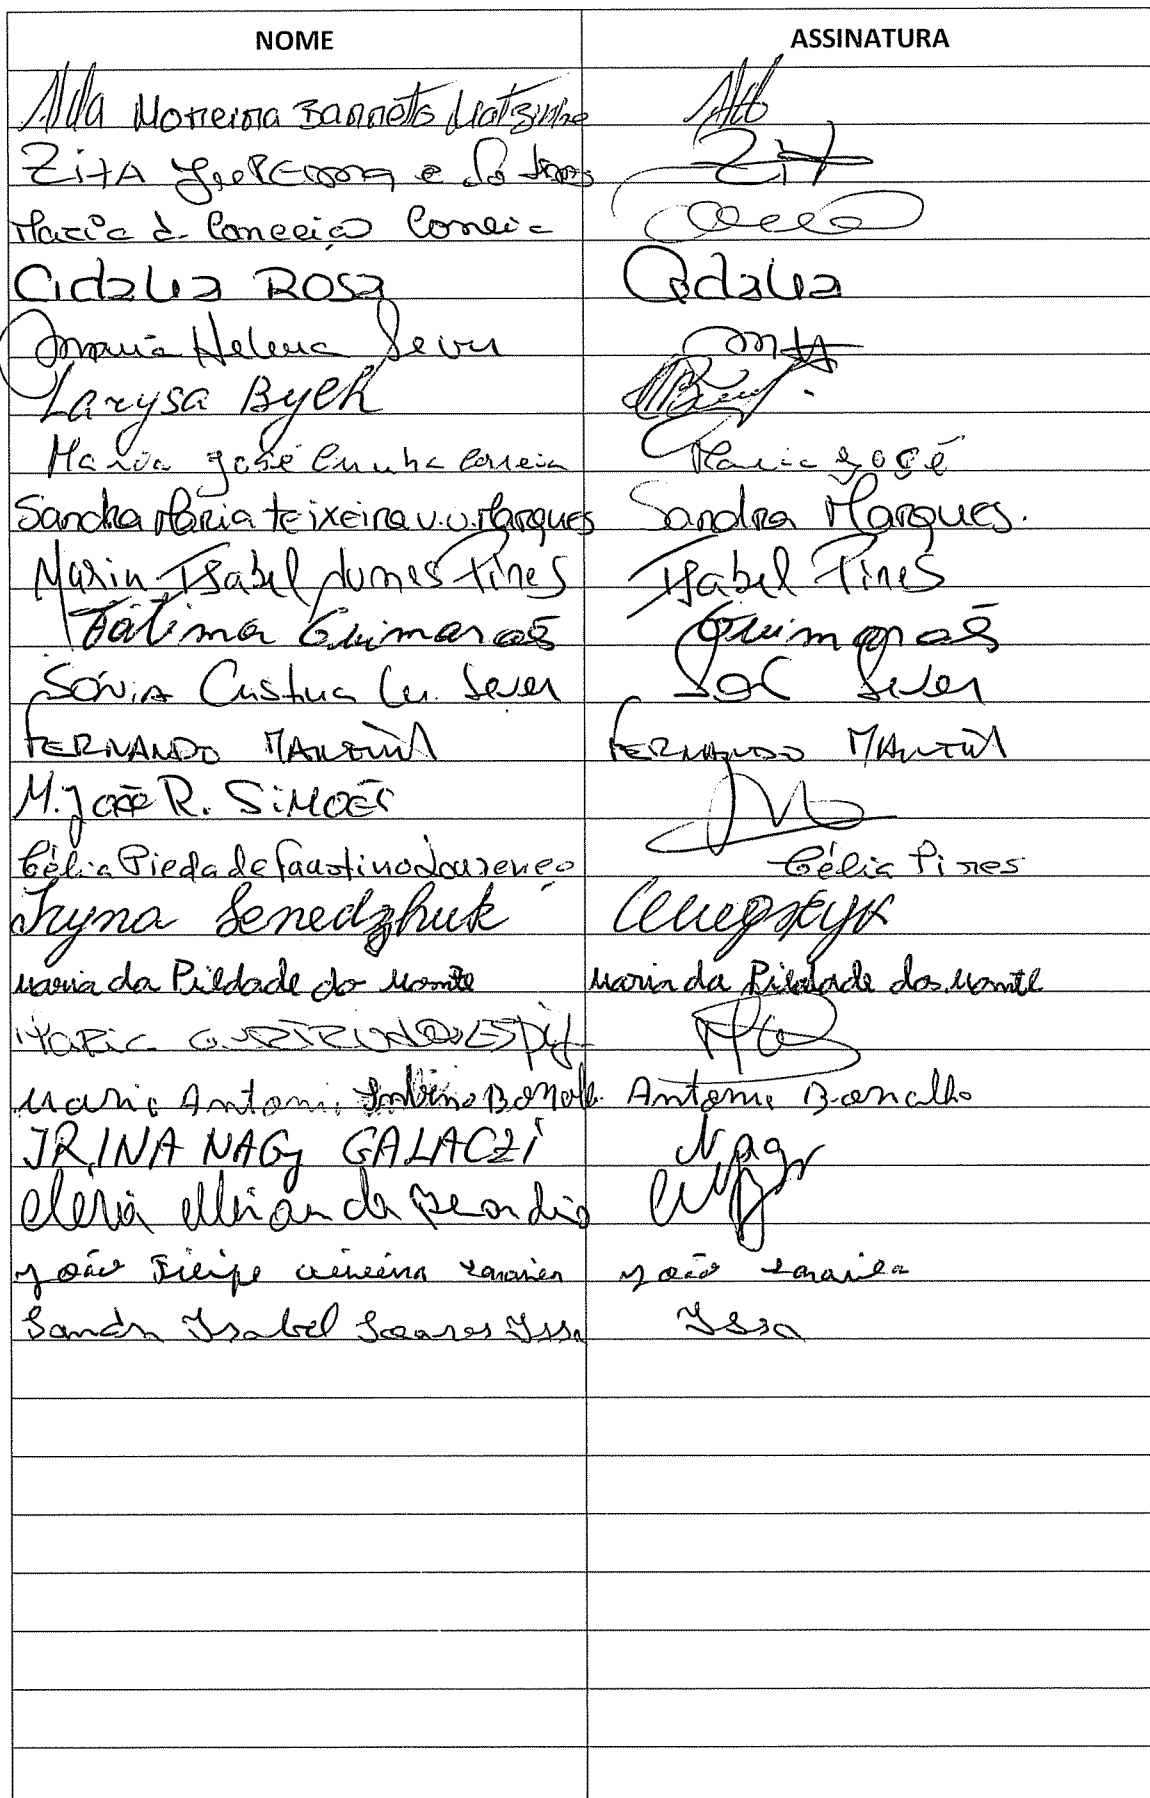 NOME ASSINATURA
Alda Moreira Barreto
ZitA Zit
Maria d. Conceição Correia
Cidalia Rosa Cidalia
Maria Helena Sever MH
Larysa Bych
Maria José Cunha Correia Maria José
Sandra Maria teixeira v.v. Marques Sandra Marques.
Maria Isabel Nunes Pires Isabel Pires
Fátima Guimarães Guimarães
Sónia Cristina Sever Sever
FERNANDO MARTINS FERNANDO MARTINS
M. José R. SiMOES
Célia Piedade Faustino Lourenço Célia Pires
Iryna Senedzhuk Сенеджук
Maria da Piedade do Monte Maria da Piedade dos Monte
Maria
Maria Antoni Antonia Barnalho
IRINA NAGy GALACZi Nagy
Miranda
João Filipe João
Sandra Isabel Soares Issa Issa